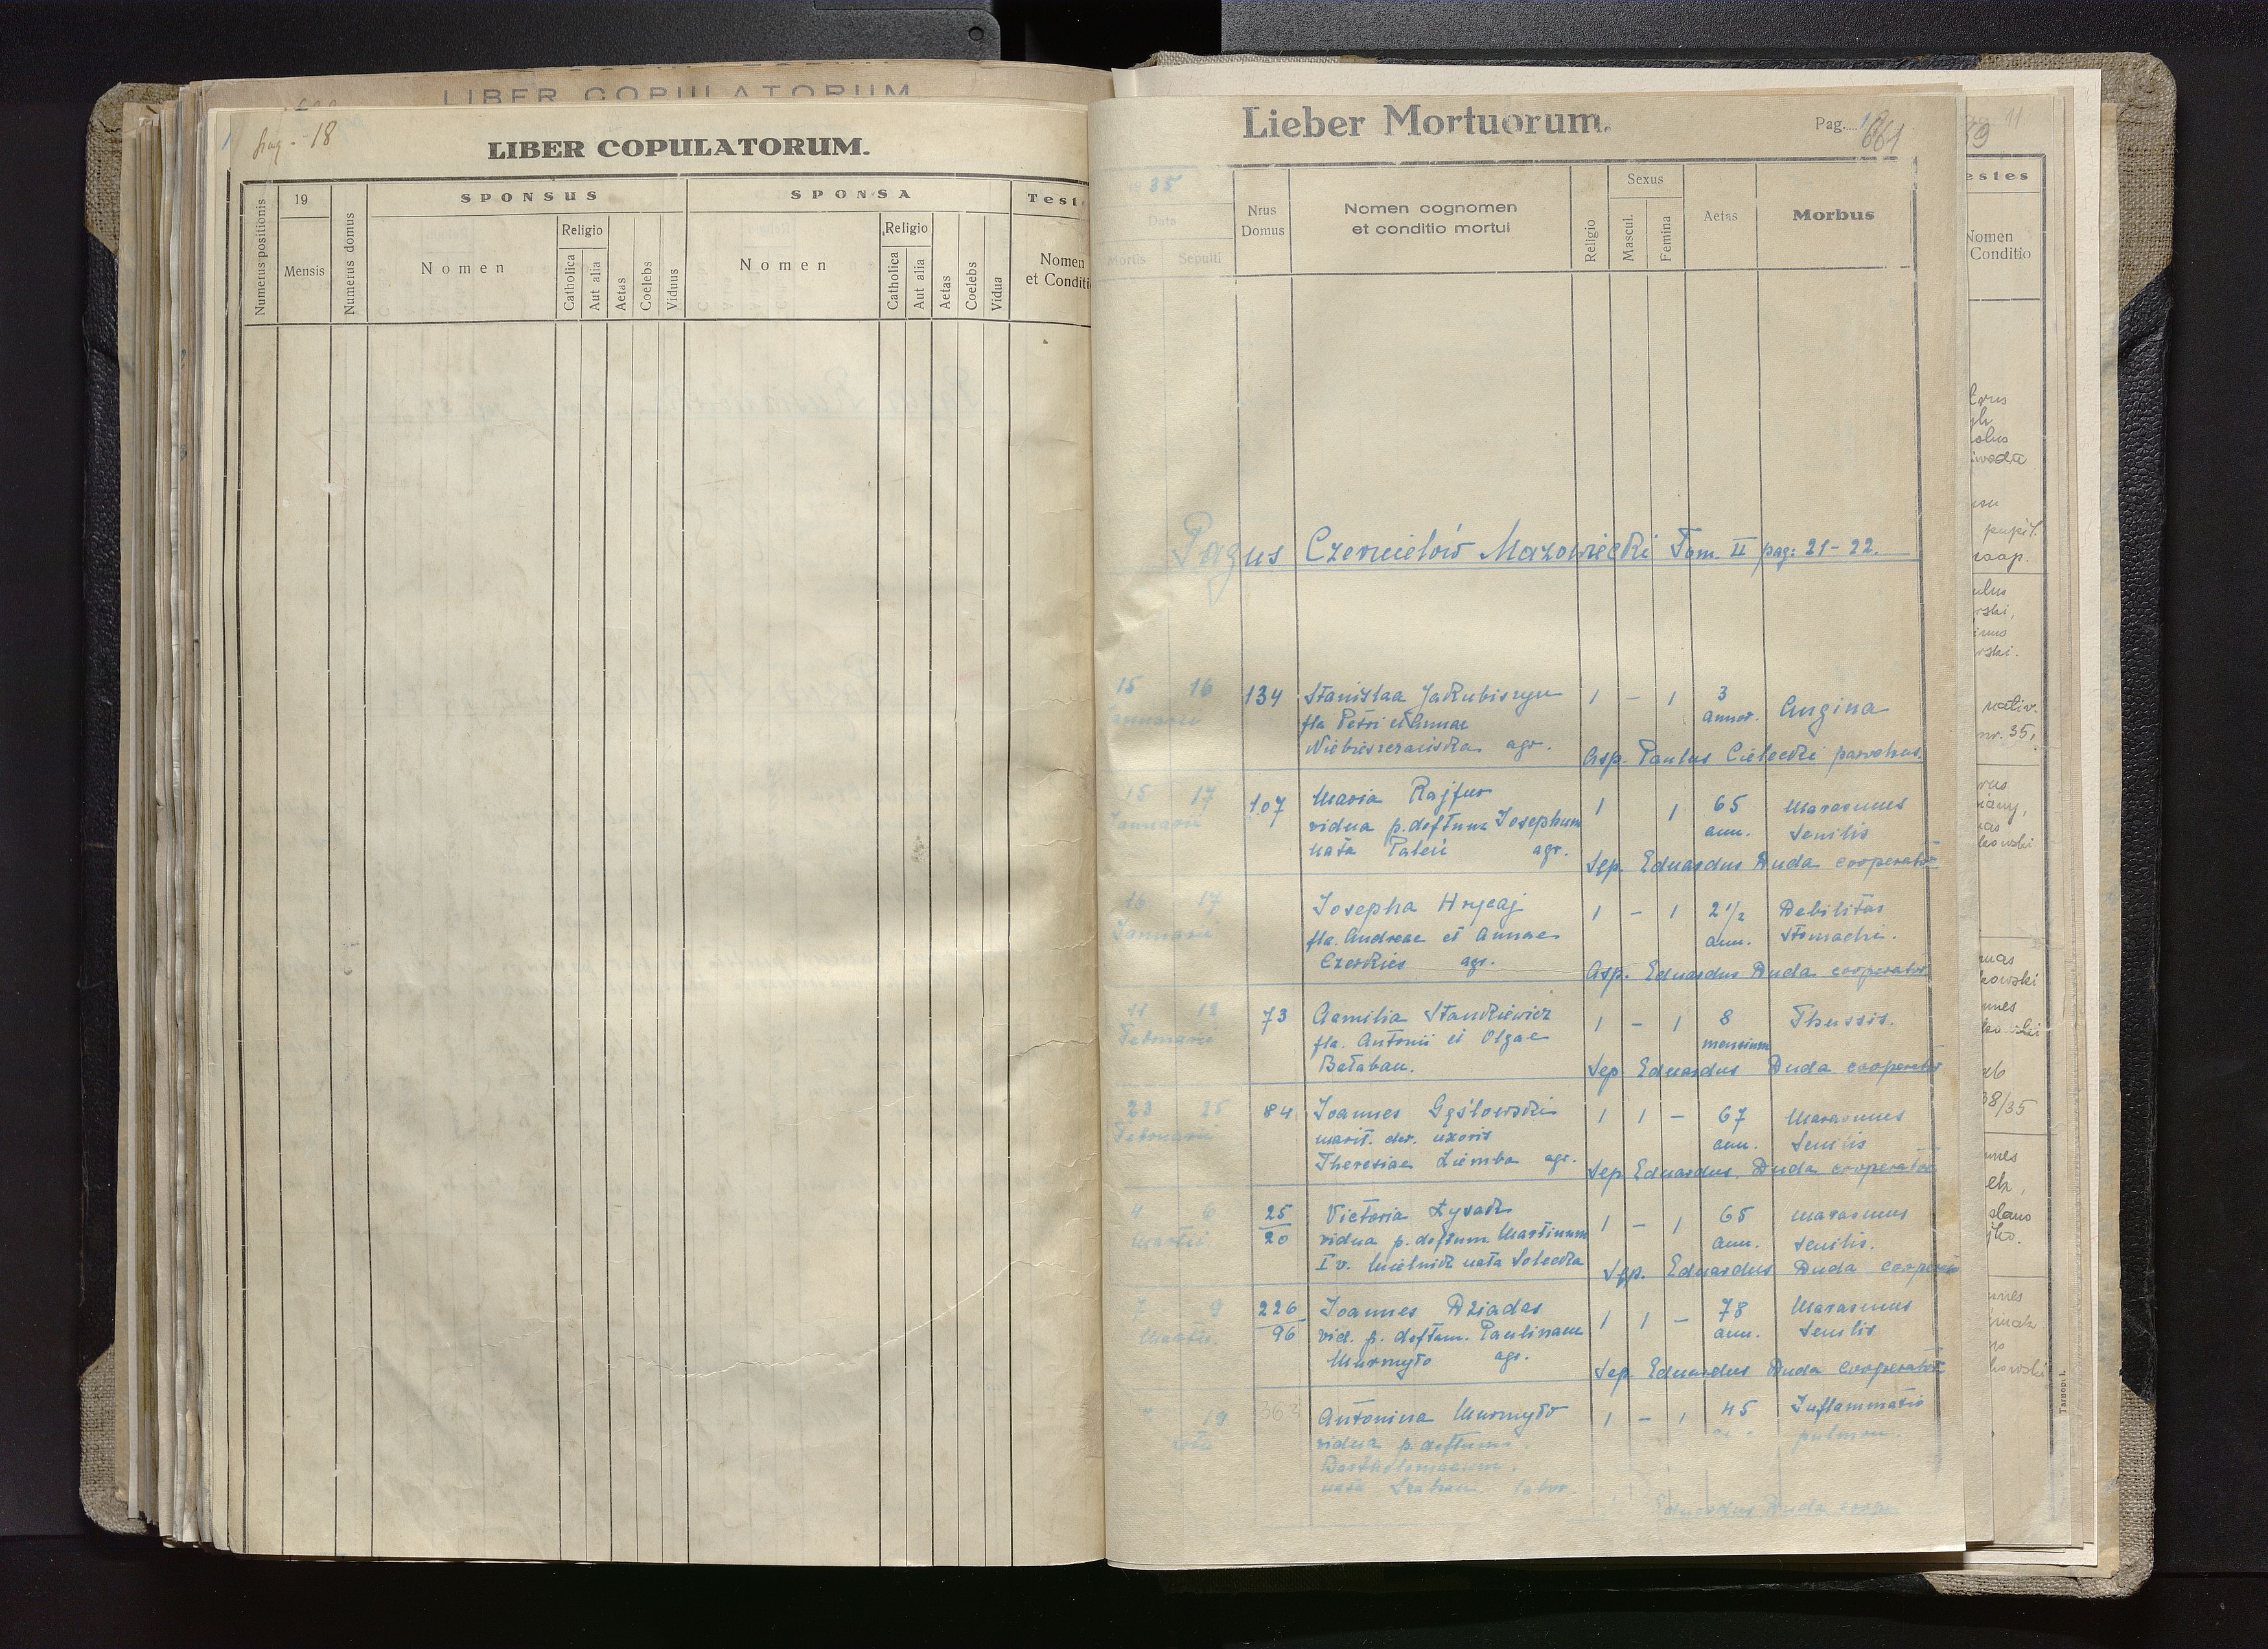 LIBER COPULATORUM
pag. 18
LIBER COPULATORUM.
Numerus positionis
19
Mensis
Numerus domus
SPONSUS
Nomen
Religio
Catholica
Aut alia
Aetas
Coelebs
Viduus
SPONSA
Nomen
Religio
Catholica
Aut alia
Aetas
Coelebs
Vidua
Nomen
Lieber Mortuorum.
Pag. 661
1935
Data
Mortis
Sepulti
Nrus
Domus
Nomen cognomen
et conditio mortui
Religio
Sexus
Mascul.
Femina
Aetas
Morbus
Pagus Czernielów Mazowiecki Tom. II pag: 21-22.
15 16 134 Stanislaa Jakubiszyn 1 - 1 3 Angina
Januarii fla Petri et Annae annor.
agr.
Asp. Paulus Cielecki parochus.
15 17 107 Maria Rajfur 1 1 65 Marasmus
Januarii vidua p. deftum Josephum ann. senilis
nata agr.
Sep. Eduardus Duda cooperator
16 17 Josepha Hrycaj 1 - 1 2 1/2 Debilitas
Januarii fla. Andreae et Annae ann. stomachi.
agr.
Asp. Eduardus Duda cooperator
11 12 73 Aemilia Stankiewicz 1 - 1 8 Thussis.
Februarii fla. Antonii et Olgae mensium
Bałaban.
Sep Eduardus Duda cooperator
23 25 84 Joannes Gęstowski 1 1 - 67 Marasmus
Februarii marit. der. uxoris ann. senilis
Theresiae Ziemba agr.
Sep Eduardus Duda cooperator
4 6 25/20 Victoria Łysak 1 - 1 65 marasmus
Martii vidua p. deftum Martinum ann. senilis.
I v. Mielnik nata Solecka
Sep. Eduardus Duda
7 9 226/96 Joannes Dziadas 1 1 - 78 Marasmus
Martii vid. p. deftam. Paulinam ann. senilis
Murmyło agr.
Sep Eduardus Duda cooperator
19 362 Antonina Murmyło 1 - 1 45 Inflammatio
vidua p. deftum pulmon.
Bartholomaeum.
nata labor.
Eduardus Duda
19
11
estes
Nomen
Conditio
nr. 35,
38/35
Tarnopol.